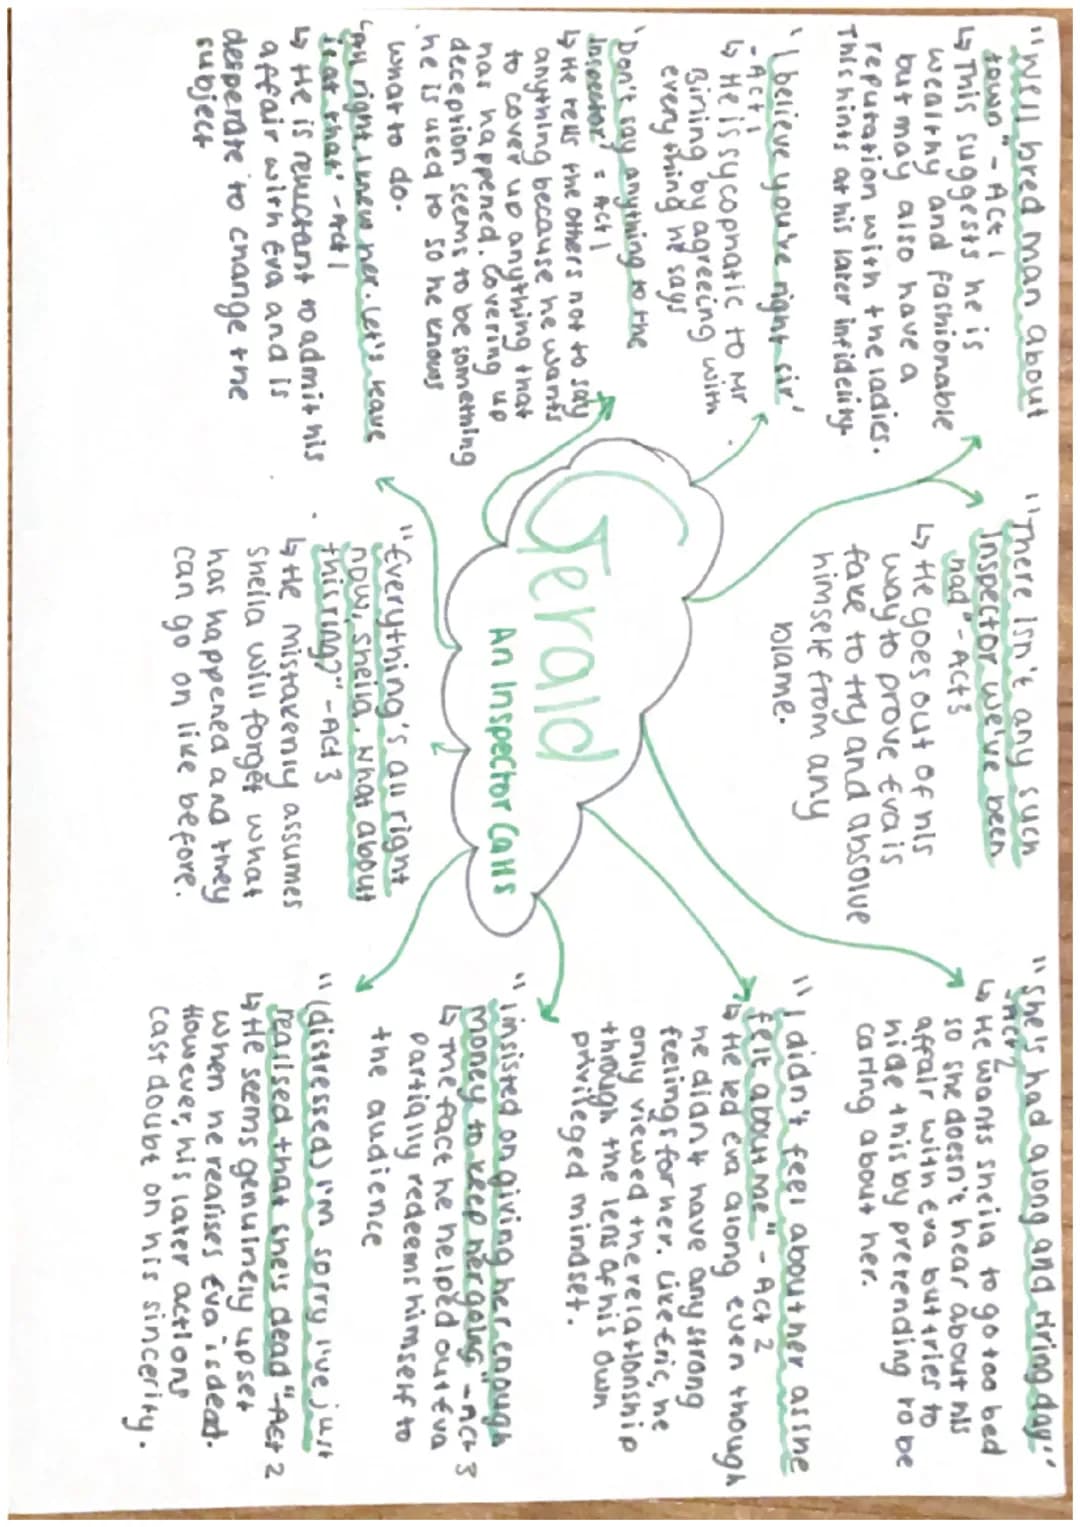 "Well bred man about
town" - Act 1
↳ This suggests he is
wealthy and fashionable
but may also have a
reputation with the ladies.
This hints at his later infidelity.
'I believe you're right sir'
- Act 1
↳ He is sycophatic to Mr
Birling by agreeing with
everything he says
'Don't say anything to the
Inspector' = Act 1
↳ He tells the others not to say
anything because he wants
to cover up anything that
has happened. Covering up
deception seems to be something
he is used to so he knows
what to do.
'All right I knew her. Let's leave
it at that' - Act 1
↳ He is reluctant to admit his
affair with Eva and is
desperate to change the
subject
"There isn't any such
Inspector we've been
had" - Act 3
↳ He goes out of his
way to prove Eva is
fake to try and absolve
himself from any
blame.
Gerald
An Inspector Calls
"Everything's all right
now, Sheila. What about
this ring?" - Act 3
↳ He mistakenly assumes
Sheila will forget what
has happened and they
can go on like before.
"She's had a long and tiring day."
- Act 2
↳ He wants Sheila to go too bed
so she doesn't hear about his
affair with Eva but tries to
hide this by pretending to be
caring about her.
"I didn't feel about her as she
felt about me" - Act 2
↳ He led Eva along even though
he didn't have any strong
feelings for her. Like Eric, he
only viewed the relationship
though the lens of his own
privileged mindset.
"I insisted on giving her enough
money to keep her going" - Act 3
↳ The fact he helped out Eva
partially redeems himself to
the audience
"(distressed) I'm sorry I've just
realised that she's dead" - Act 2
↳ He seems genuinely upset
when he realises Eva is dead.
However, his later actions
cast doubt on his sincerity.